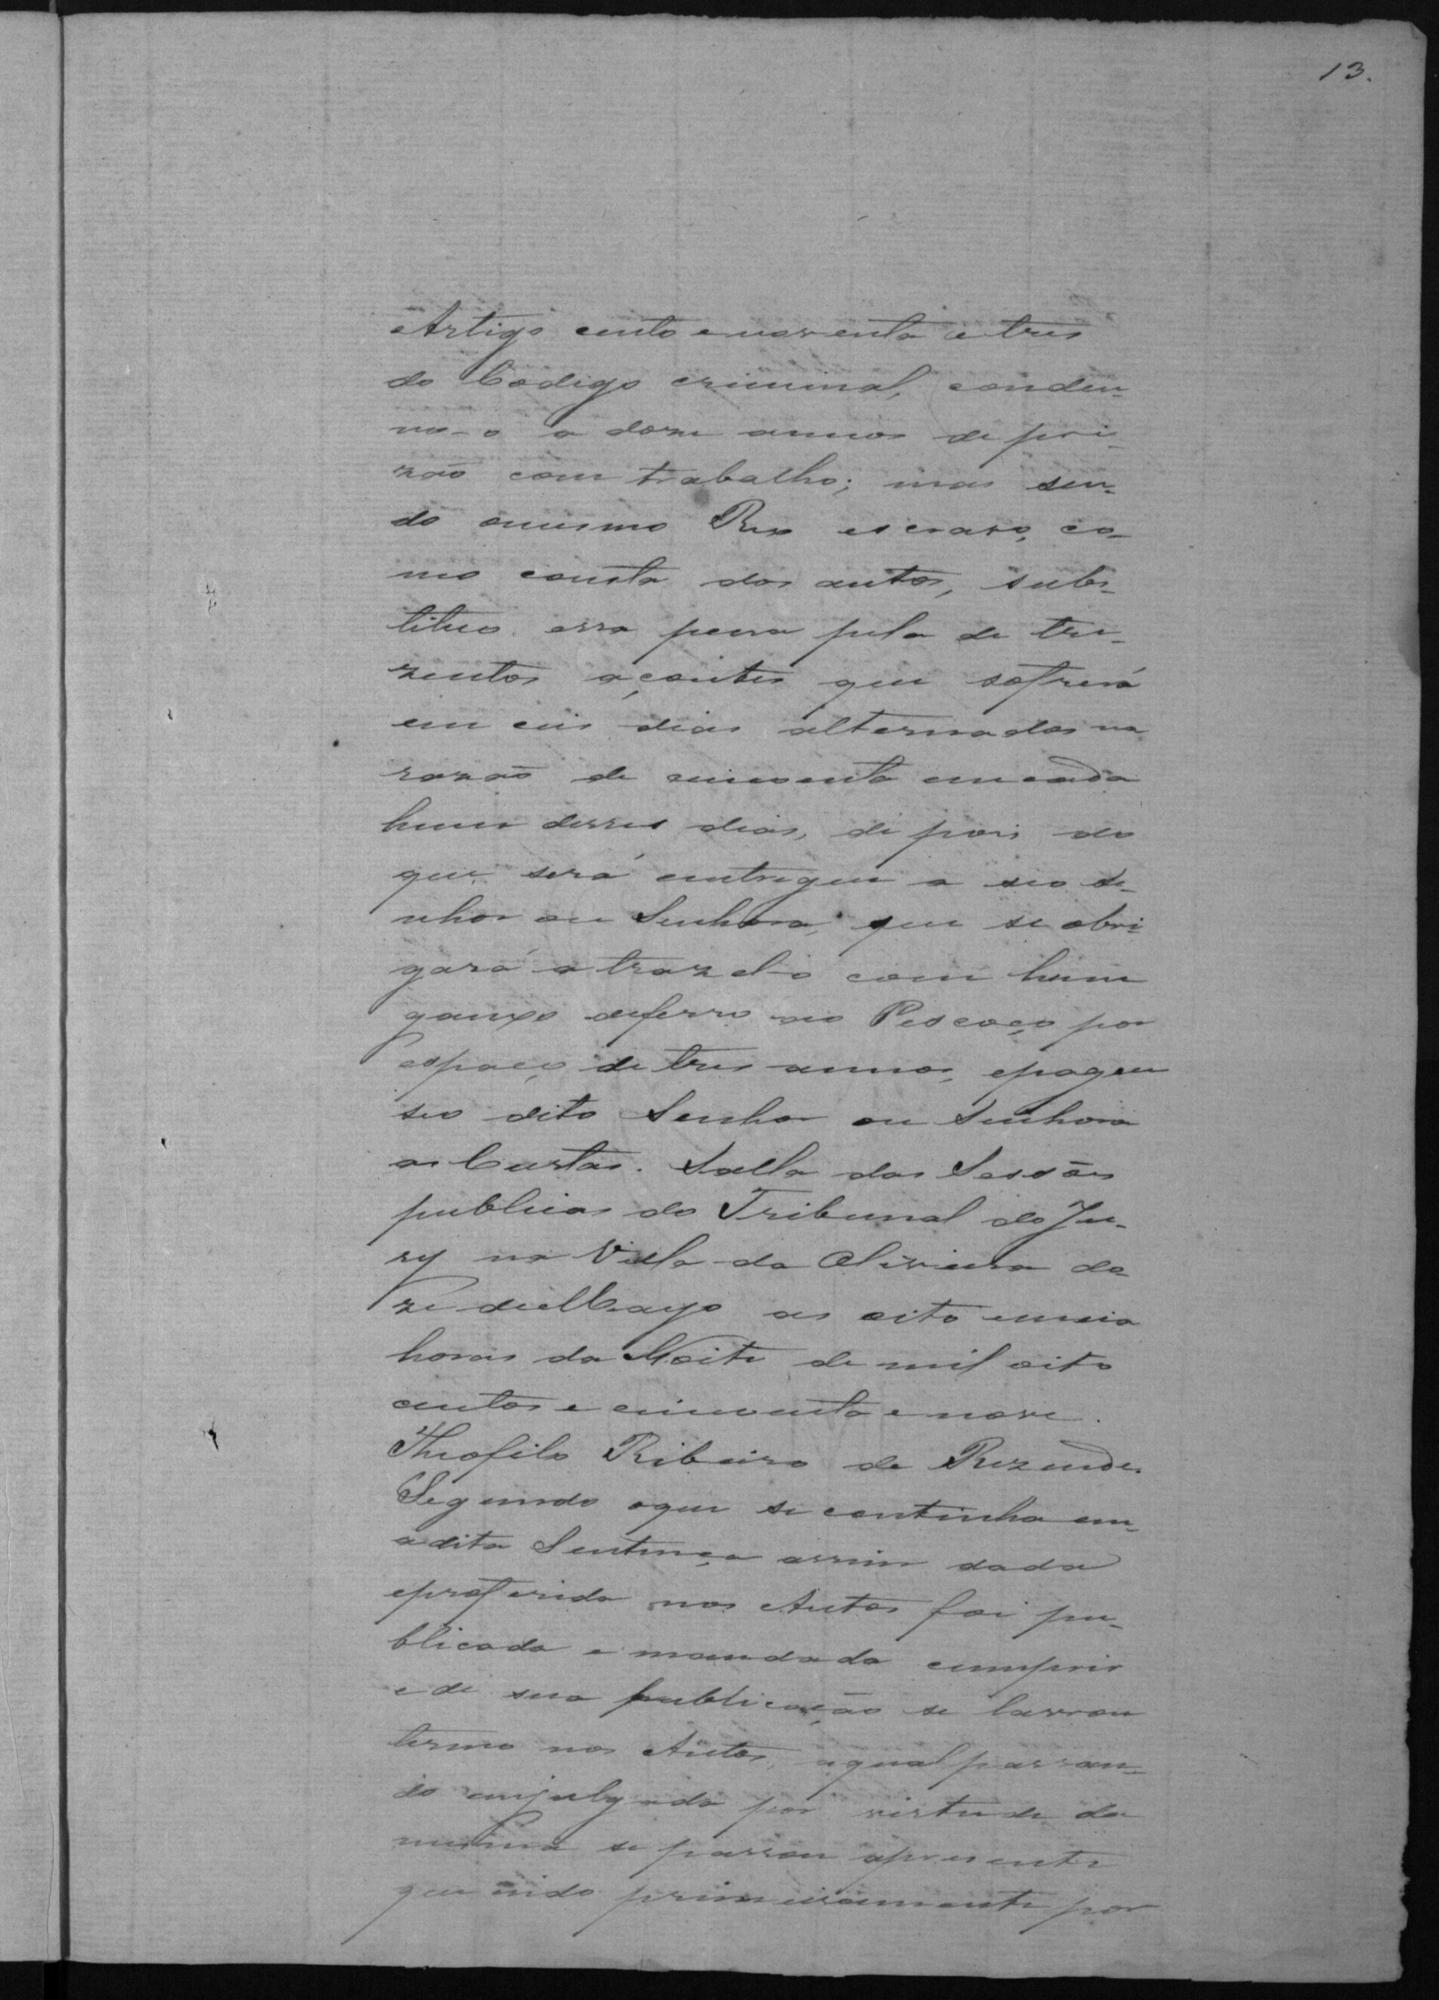 13.
Artigo cento e noventa e tres
do Codigo criminal, conden-
no-o a doze annos de pri-
zão com trabalho; mas sen-
do omesmo Reo escravo, co-
mo consta dos autos, subs-
tituo essa pena pela de tre-
zentos açoutes que sofrerá
em seis dias alternados na
razão de cincoenta em cada
hum desses dias, depois do
que será entregue a seo Se-
nhor ou Senhora, que se obri-
gará a trazel-o com hum
ganxo deferro no Pescoço por
espaço de tres annos, epague
seo dito Senhor ou Senhora
as Custas. Salla das Sessões
publicas do Tribunal do Ju-
ry na Villa da Oliveira do-
ze de Mayo as oito emeia
horas da Noite de mil oito
centos e cincoenta e nove.
Theofilo Ribeiro de Rezende.
Segundo oque se continha em
adita Sentença assim dada
eproferida nos Autos foi pu-
blicada e mandada cumprir
e de sua publicação se lavrou
termo nos Autos, aqual passan-
do emjulgado por virtude da
mesma se passou apresente
que indo primeiramente por